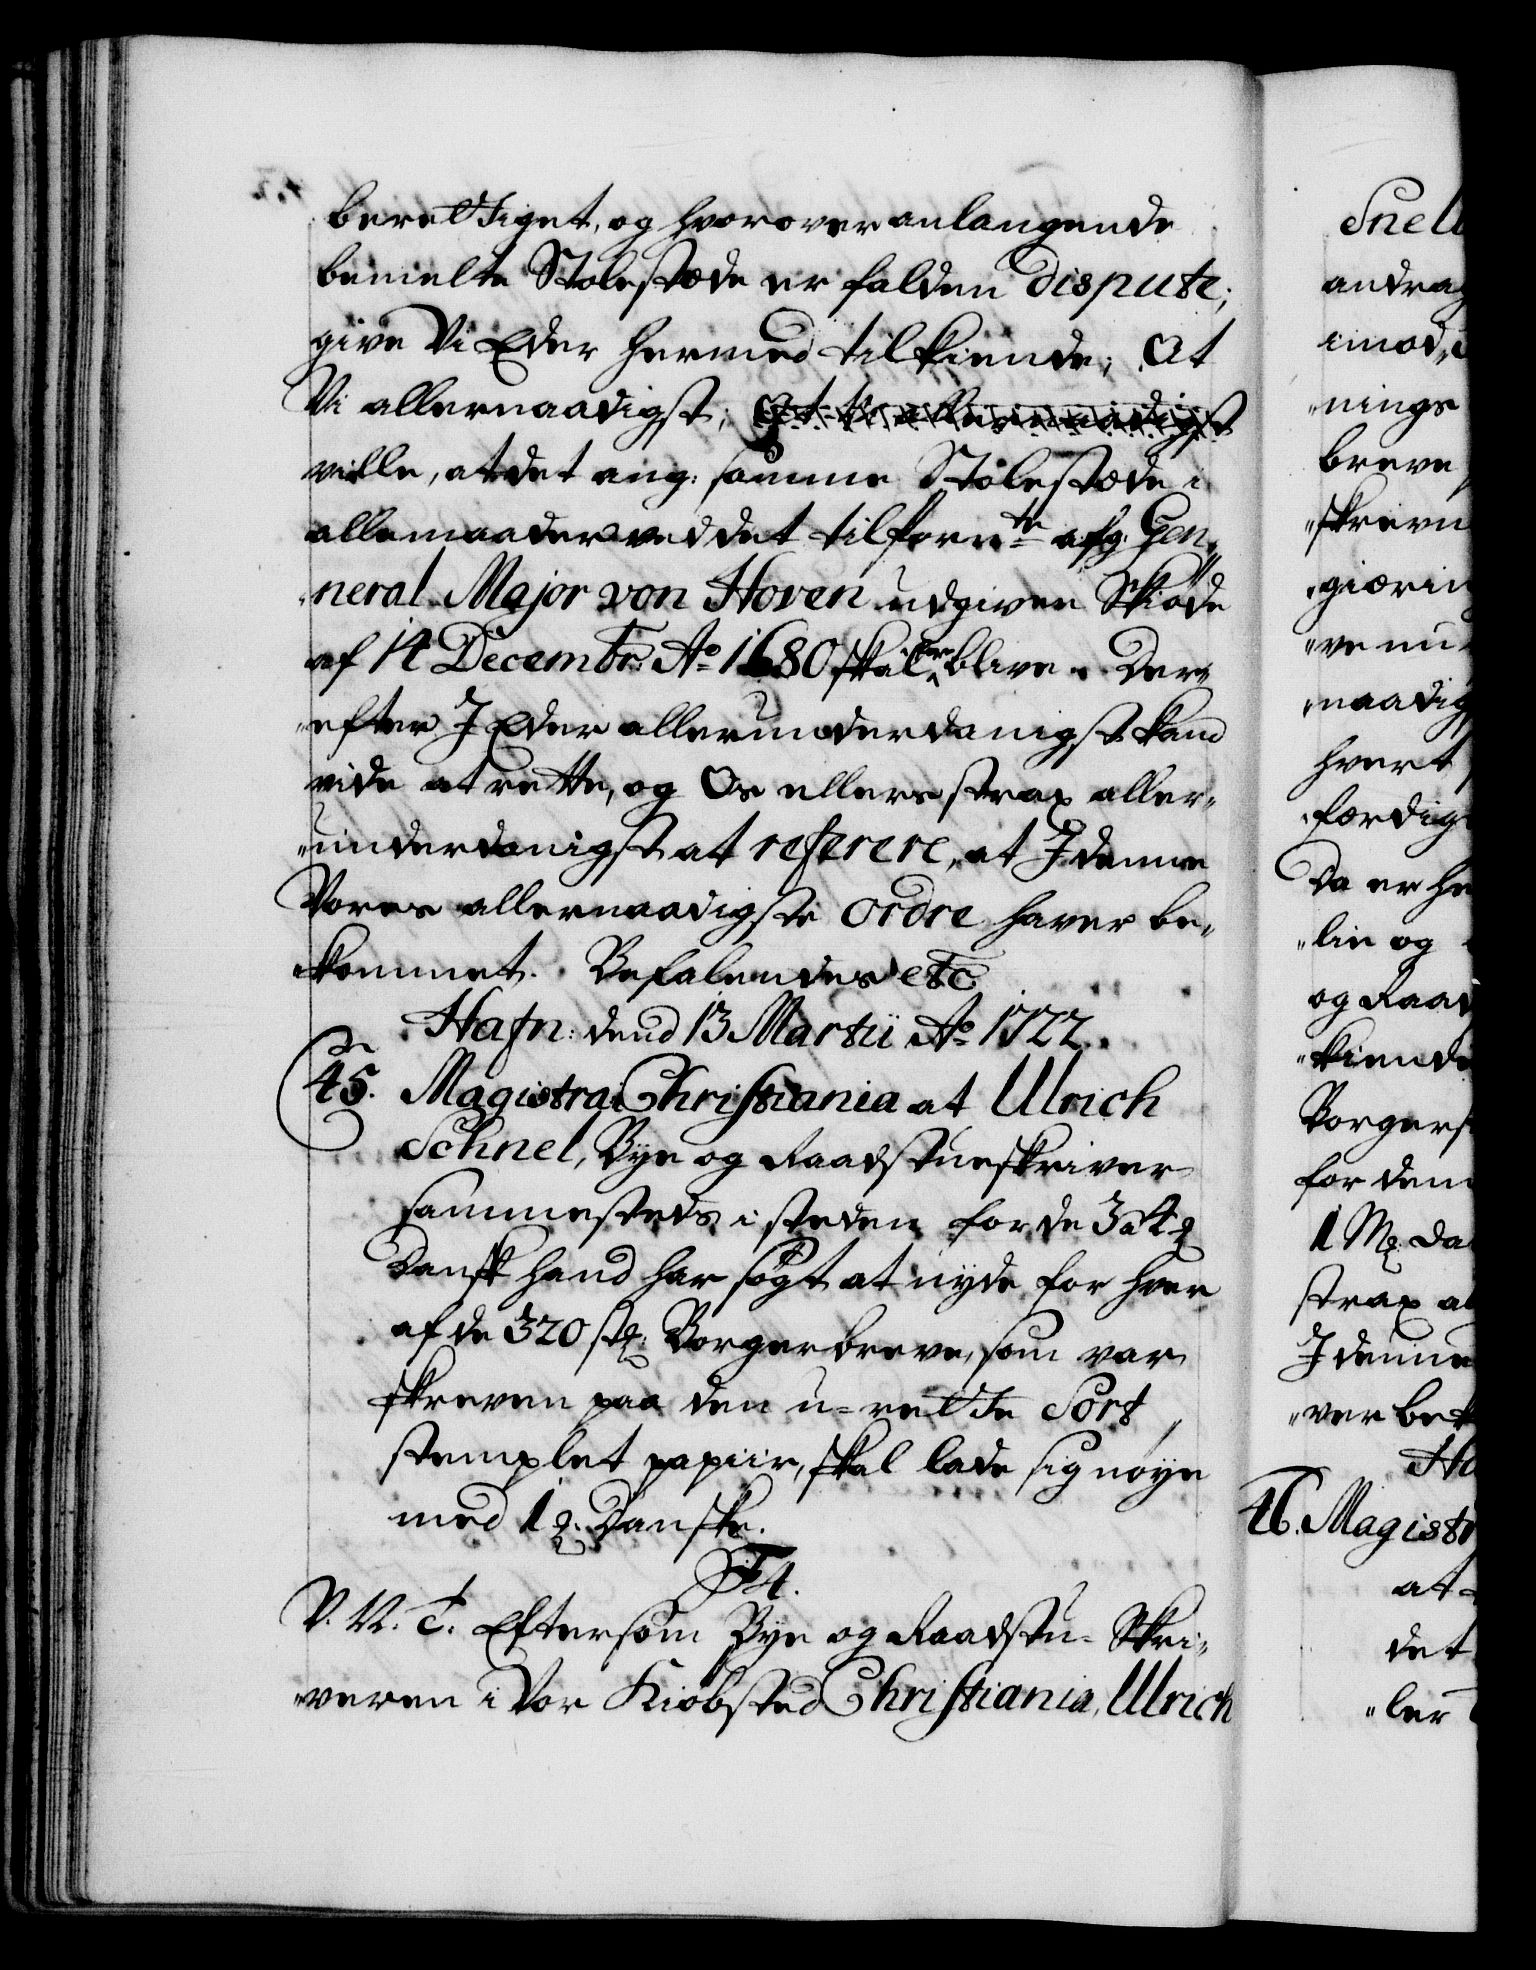 berettiget, og hvorover anlangende
bemelte Stolestæde er falden dispute;
give Vi Eder hermed tilkiende; At
Vi allernaadigst, At Vi allernaadigst
ville, at det ang: samme Stolestæde i
alle maader ved det tilforn af Gen„
„neral Major von Hoven udgiven Skiøde
af 14 Decembr: Ao 1680 skal for„blive. Der„
„efter I Eder allerunderdanigst kand
vide at rette, og Os ellers strax aller„
„underdanigst at referere, at I denne
Vores allernaadigste Ordre haver be„
„kommet. Befalendes etc
Hafn: dend 13 Martii Ao 1722.
45. Magistra: Christiania at Ulrich
Schnel, Bye og Raadstueskriver
sammesteds i steden for de 3 a 4 ꝶ
Dansk hand har søgt at nyde for hver
af de 320 st: Borgerbreve, som var
skreven paa den u-rette Sort
stemplet papiir, skal lade sig nøye
med 1 ꝶ. Danske.
F4.
V. V. T. Eftersom Bye og Raadstu- Skri„
„veren i Vor Kiøbsted Christiania, Ulrich
Snell
andrag
imod,
„nings
breve
„skreven
„giørin
„ve nu
„naadig
hvert
færdig
Da er he
„lie og
og Raad
„kiende
Borgers
for dem
1 Mꝶ Da
strax al
I denne
„ver bek
Ha
46. Magistr
at
det
„ler